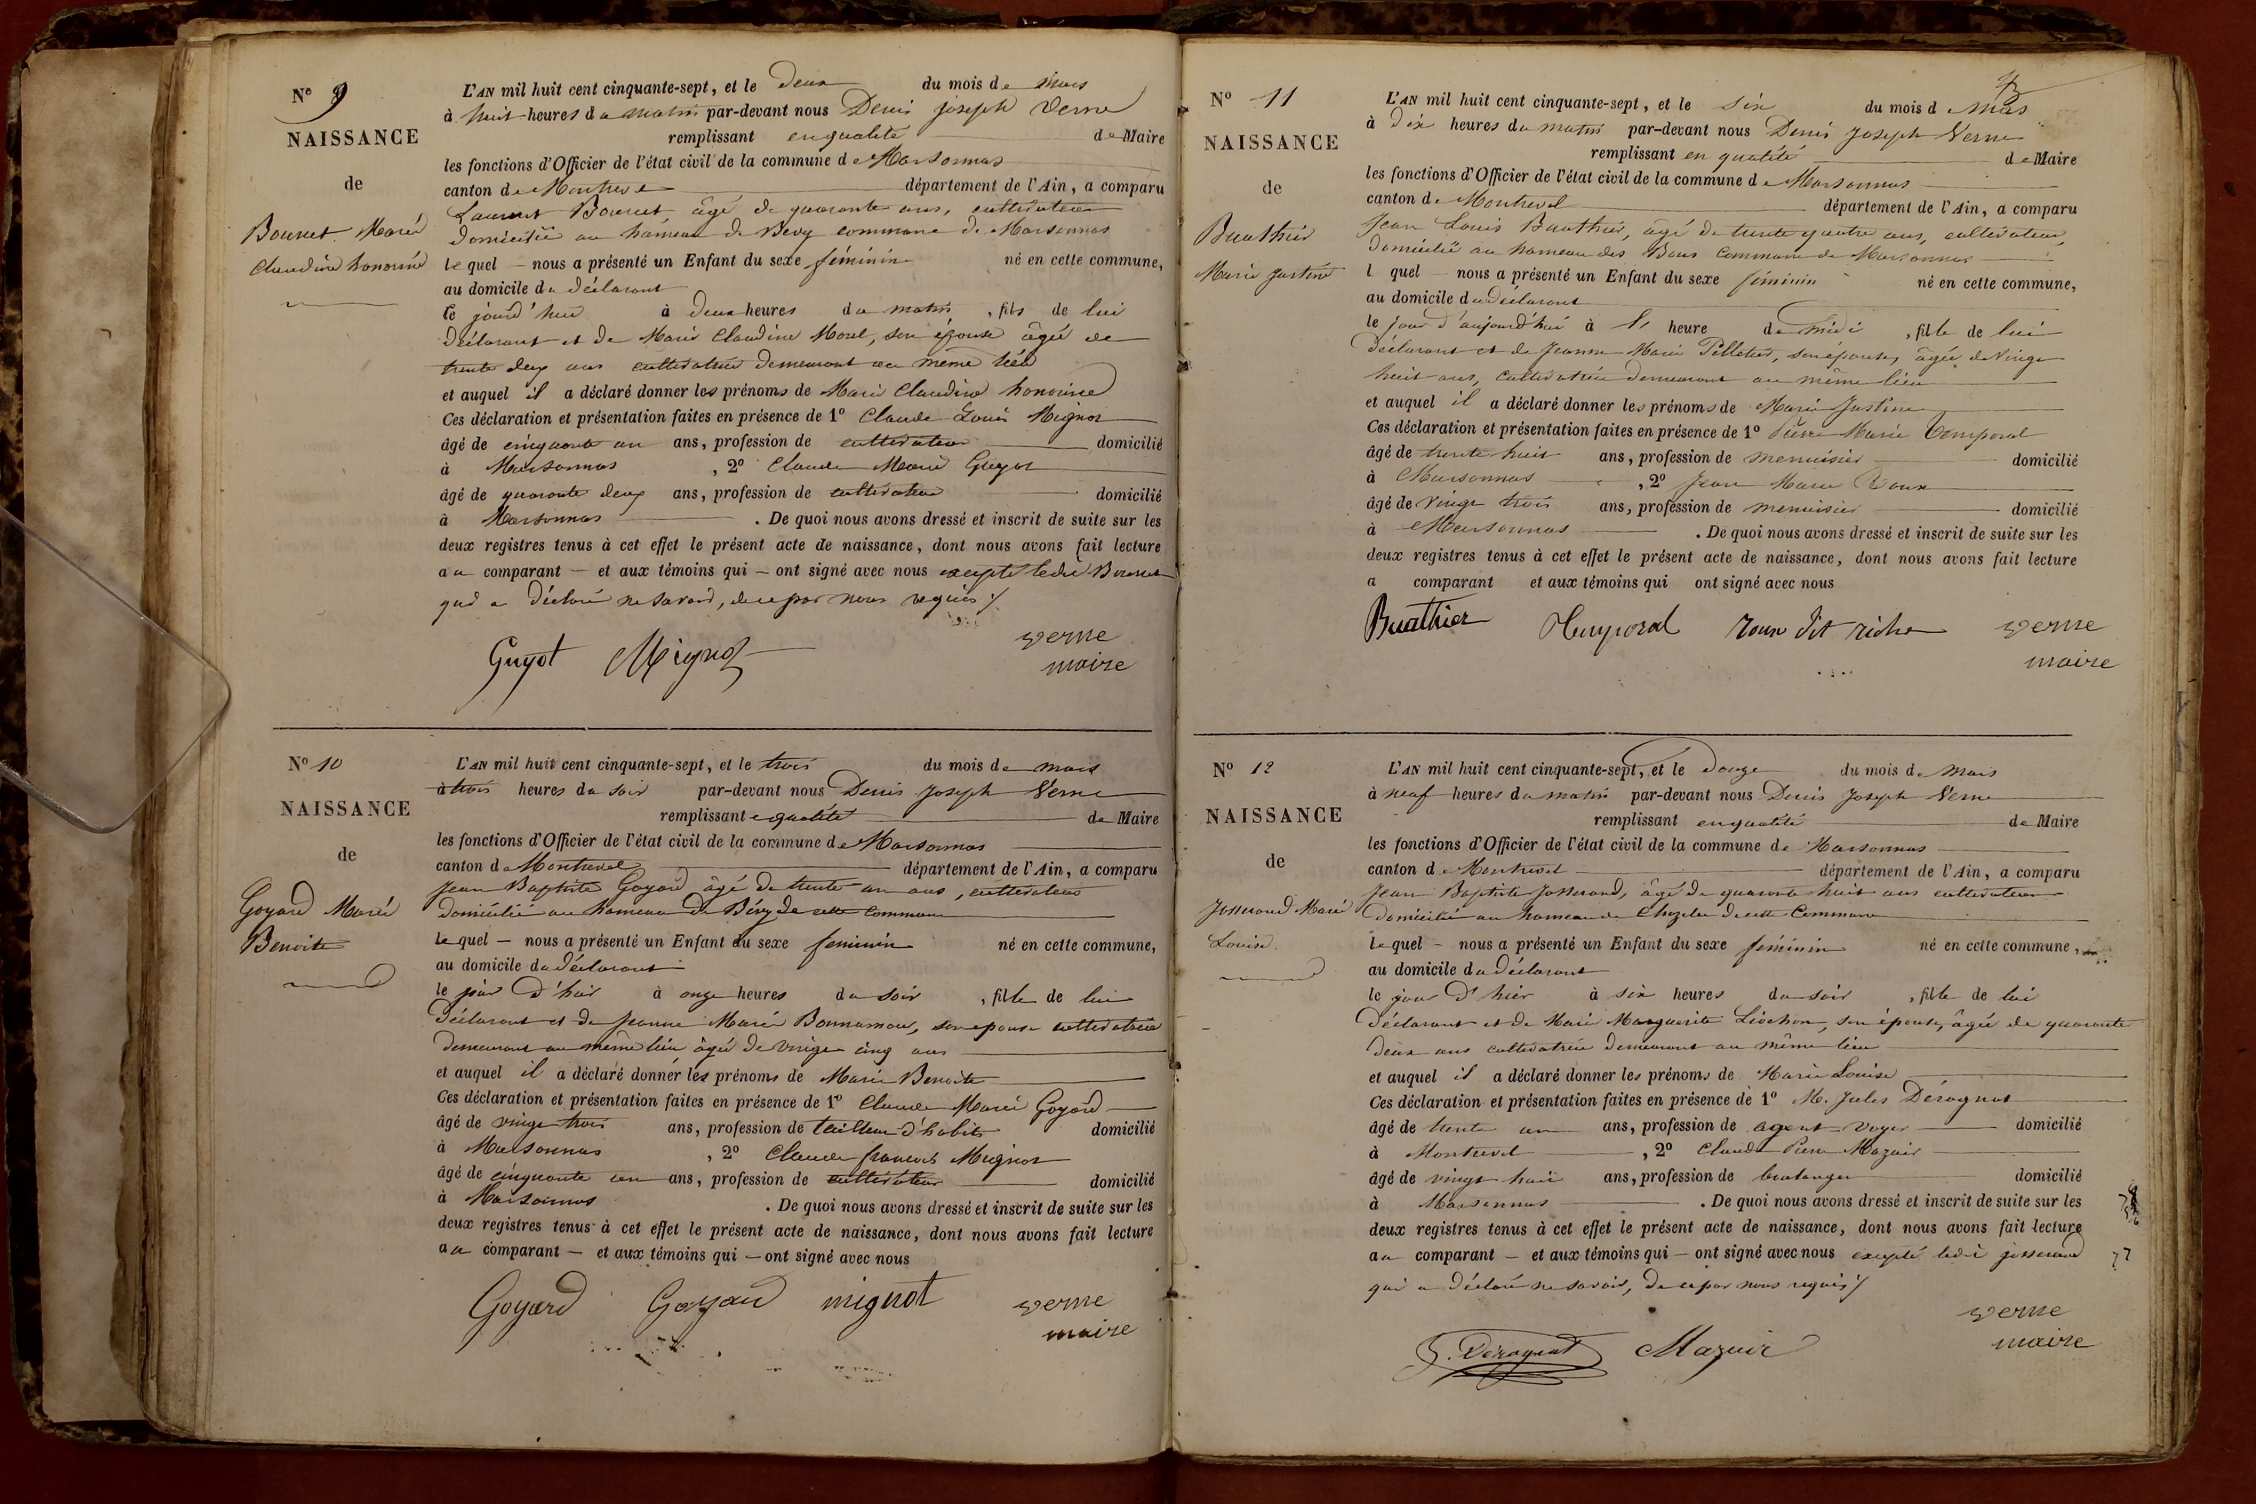 N° 9
NAISSANCE
de
Bourcet Marie
Claudine honorine
L'AN mil huit cent cinquante-sept, et le deux du mois de mars
à huit heures du matin par-devant nous Denis joseph Verne
remplissant en qualité de Maire
les fonctions d'Officier de l'état civil de la commune de Marsonnas
canton de Montrevel département de l'Ain, a comparu
Laurent Bourcet, âgé de quarante ans, cultivateur
domicilié au hameau de Bevy commune de Marsonnas
lequel – nous a présenté un Enfant du sexe féminin né en cette commune,
au domicile du déclarant
ce jourd'hui à deux heures du matin, fils de lui
déclarant et de Marie Claudine Morel, son épouse âgée de
trente deux ans cultivatrice demeurant au même lieu
et auquel il a déclaré donner les prénoms de Marie Claudine honorine
Ces déclaration et présentation faites en présence de 1° Claude Louis Mignot
âgé de cinquante un ans, profession de cultivateur domicilié
à Marsonnas, 2° Claude Marie Guyot
âgé de quarante deux ans, profession de cultivateur domicilié
à Marsonnas. De quoi nous avons dressé et inscrit de suite sur les
deux registres tenus à cet effet le présent acte de naissance, dont nous avons fait lecture
au comparant – et aux témoins qui – ont signé avec nous excepté ledit Bourcet
qui a déclaré ne savoir, de ce par nous requis ./
Guyot Mignot verne
maire
N° 10
NAISSANCE
de
Goyard Marie
Benoite
L'AN mil huit cent cinquante-sept, et le trois du mois de mars
à trois heures du soir par-devant nous Denis joseph Verne
remplissant en qualité de Maire
les fonctions d'Officier de l'état civil de la commune de Marsonnas
canton de Montrevel département de l'Ain, a comparu
jean Baptiste Goyard âgé de trente un ans, cultivateur
domicilié au hameau de Bévy de cette commune
lequel – nous a présenté un Enfant du sexe feminin né en cette commune,
au domicile du déclarant
le jour d'hier à onze heures du soir, fille de lui
déclarant et de jeanne Marie Bonnamour, son epouse cultivatrice
demeurant au même lieu âgée de vingt cinq ans
et auquel il a déclaré donner les prénoms de Marie Benoite
Ces déclaration et présentation faites en présence de 1° Claude Marie Goyard
âgé de vingt trois ans, profession de tailleur d'habits domicilié
à Marsonnas, 2° Claude françois Mignot
âgé de cinquante un ans, profession de cultivateur domicilié
à Marsonnas. De quoi nous avons dressé et inscrit de suite sur les
deux registres tenus à cet effet le présent acte de naissance, dont nous avons fait lecture
au comparant – et aux témoins qui – ont signé avec nous
Goyard Goyard mignot verne
maire
N° 11
NAISSANCE
de
Buathier
Marie Justine
L'AN mil huit cent cinquante-sept, et le six du mois d Mars
à dix heures du matin par-devant nous Denis Joseph Verne
remplissant en qualité de Maire
les fonctions d'Officier de l'état civil de la commune de Marsonnas
canton de Montrevel département de l'Ain, a comparu
Jean Louis Buathier, âgé de trente quatre ans, cultivateur,
domicilié au hameau des Bous commune de Marsonnas
l quel – nous a présenté un Enfant du sexe féminin né en cette commune,
au domicile du déclarant
le jour d'aujourd'hui à heure de midi, fille de lui
déclarant et de Jeanne Marie Pelletier, son épouse, âgée de Vingt
huit ans, cultivatrice demeurant au même lieu
et auquel il a déclaré donner les prénoms de Marie Justine
Ces déclaration et présentation faites en présence de 1° Pierre Marie Temporal
âgé de trente huit ans, profession de menuisier domicilié
à Marsonnas, 2° Jean Marie Roux
âgé de vingt trois ans, profession de menuisier domicilié
à Marsonnas. De quoi nous avons dressé et inscrit de suite sur les
deux registres tenus à cet effet le présent acte de naissance, dont nous avons fait lecture
a comparant et aux témoins qui ont signé avec nous
Buathier Temporal roux dit riche verne
maire
N° 12
NAISSANCE
de
Josserand Marie
Louise
L'AN mil huit cent cinquante-sept, et le douze du mois de Mars
à neuf heures du matin par-devant nous Denis Joseph Verne
remplissant en qualité de Maire
les fonctions d'Officier de l'état civil de la commune de Marsonnas
canton de Montrevel département de l'Ain, a comparu
Jean Baptiste Josserand, âgé de quarante huit ans cultivateur
domicilié au hameau de de cette Commune
lequel – nous a présenté un Enfant du sexe féminin né en cette commune,
au domicile du déclarant
le jour d'hier à six heures du soir, fille de lui
déclarant et de Marie Marguerite Liochon, son épouse, âgée de quarante
deux ans cultivatrice demeurant au même lieu
et auquel il a déclaré donner les prénoms de Marie Louise
Ces déclaration et présentation faites en présence de 1° M. Jules Dérognat
âgé de trente un ans, profession de agent voyer domicilié
à Montrevel, 2° Claude Pierre Mazuir
âgé de vingt huit ans, profession de boulanger domicilié
à Marsonnas. De quoi nous avons dressé et inscrit de suite sur les
deux registres tenus à cet effet le présent acte de naissance, dont nous avons fait lecture
au comparant – et aux témoins qui – ont signé avec nous excepté ledit josserand
qui a déclaré ne savoir, de ce par nous requis ./
J. Derognat Mazuir verne
maire